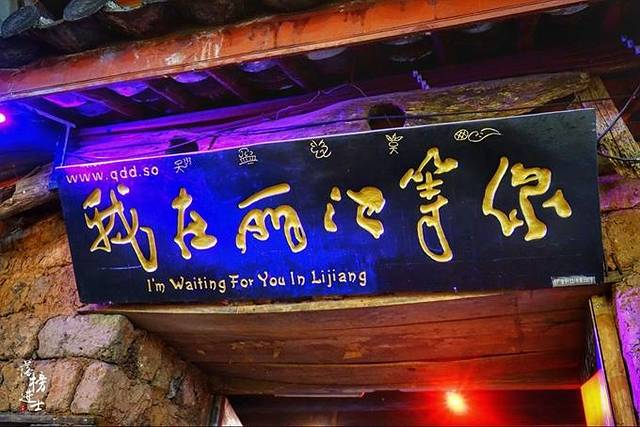 www.qdd.so
我在丽江等你
I'm Waiting For You In Lijiang
落榜进士